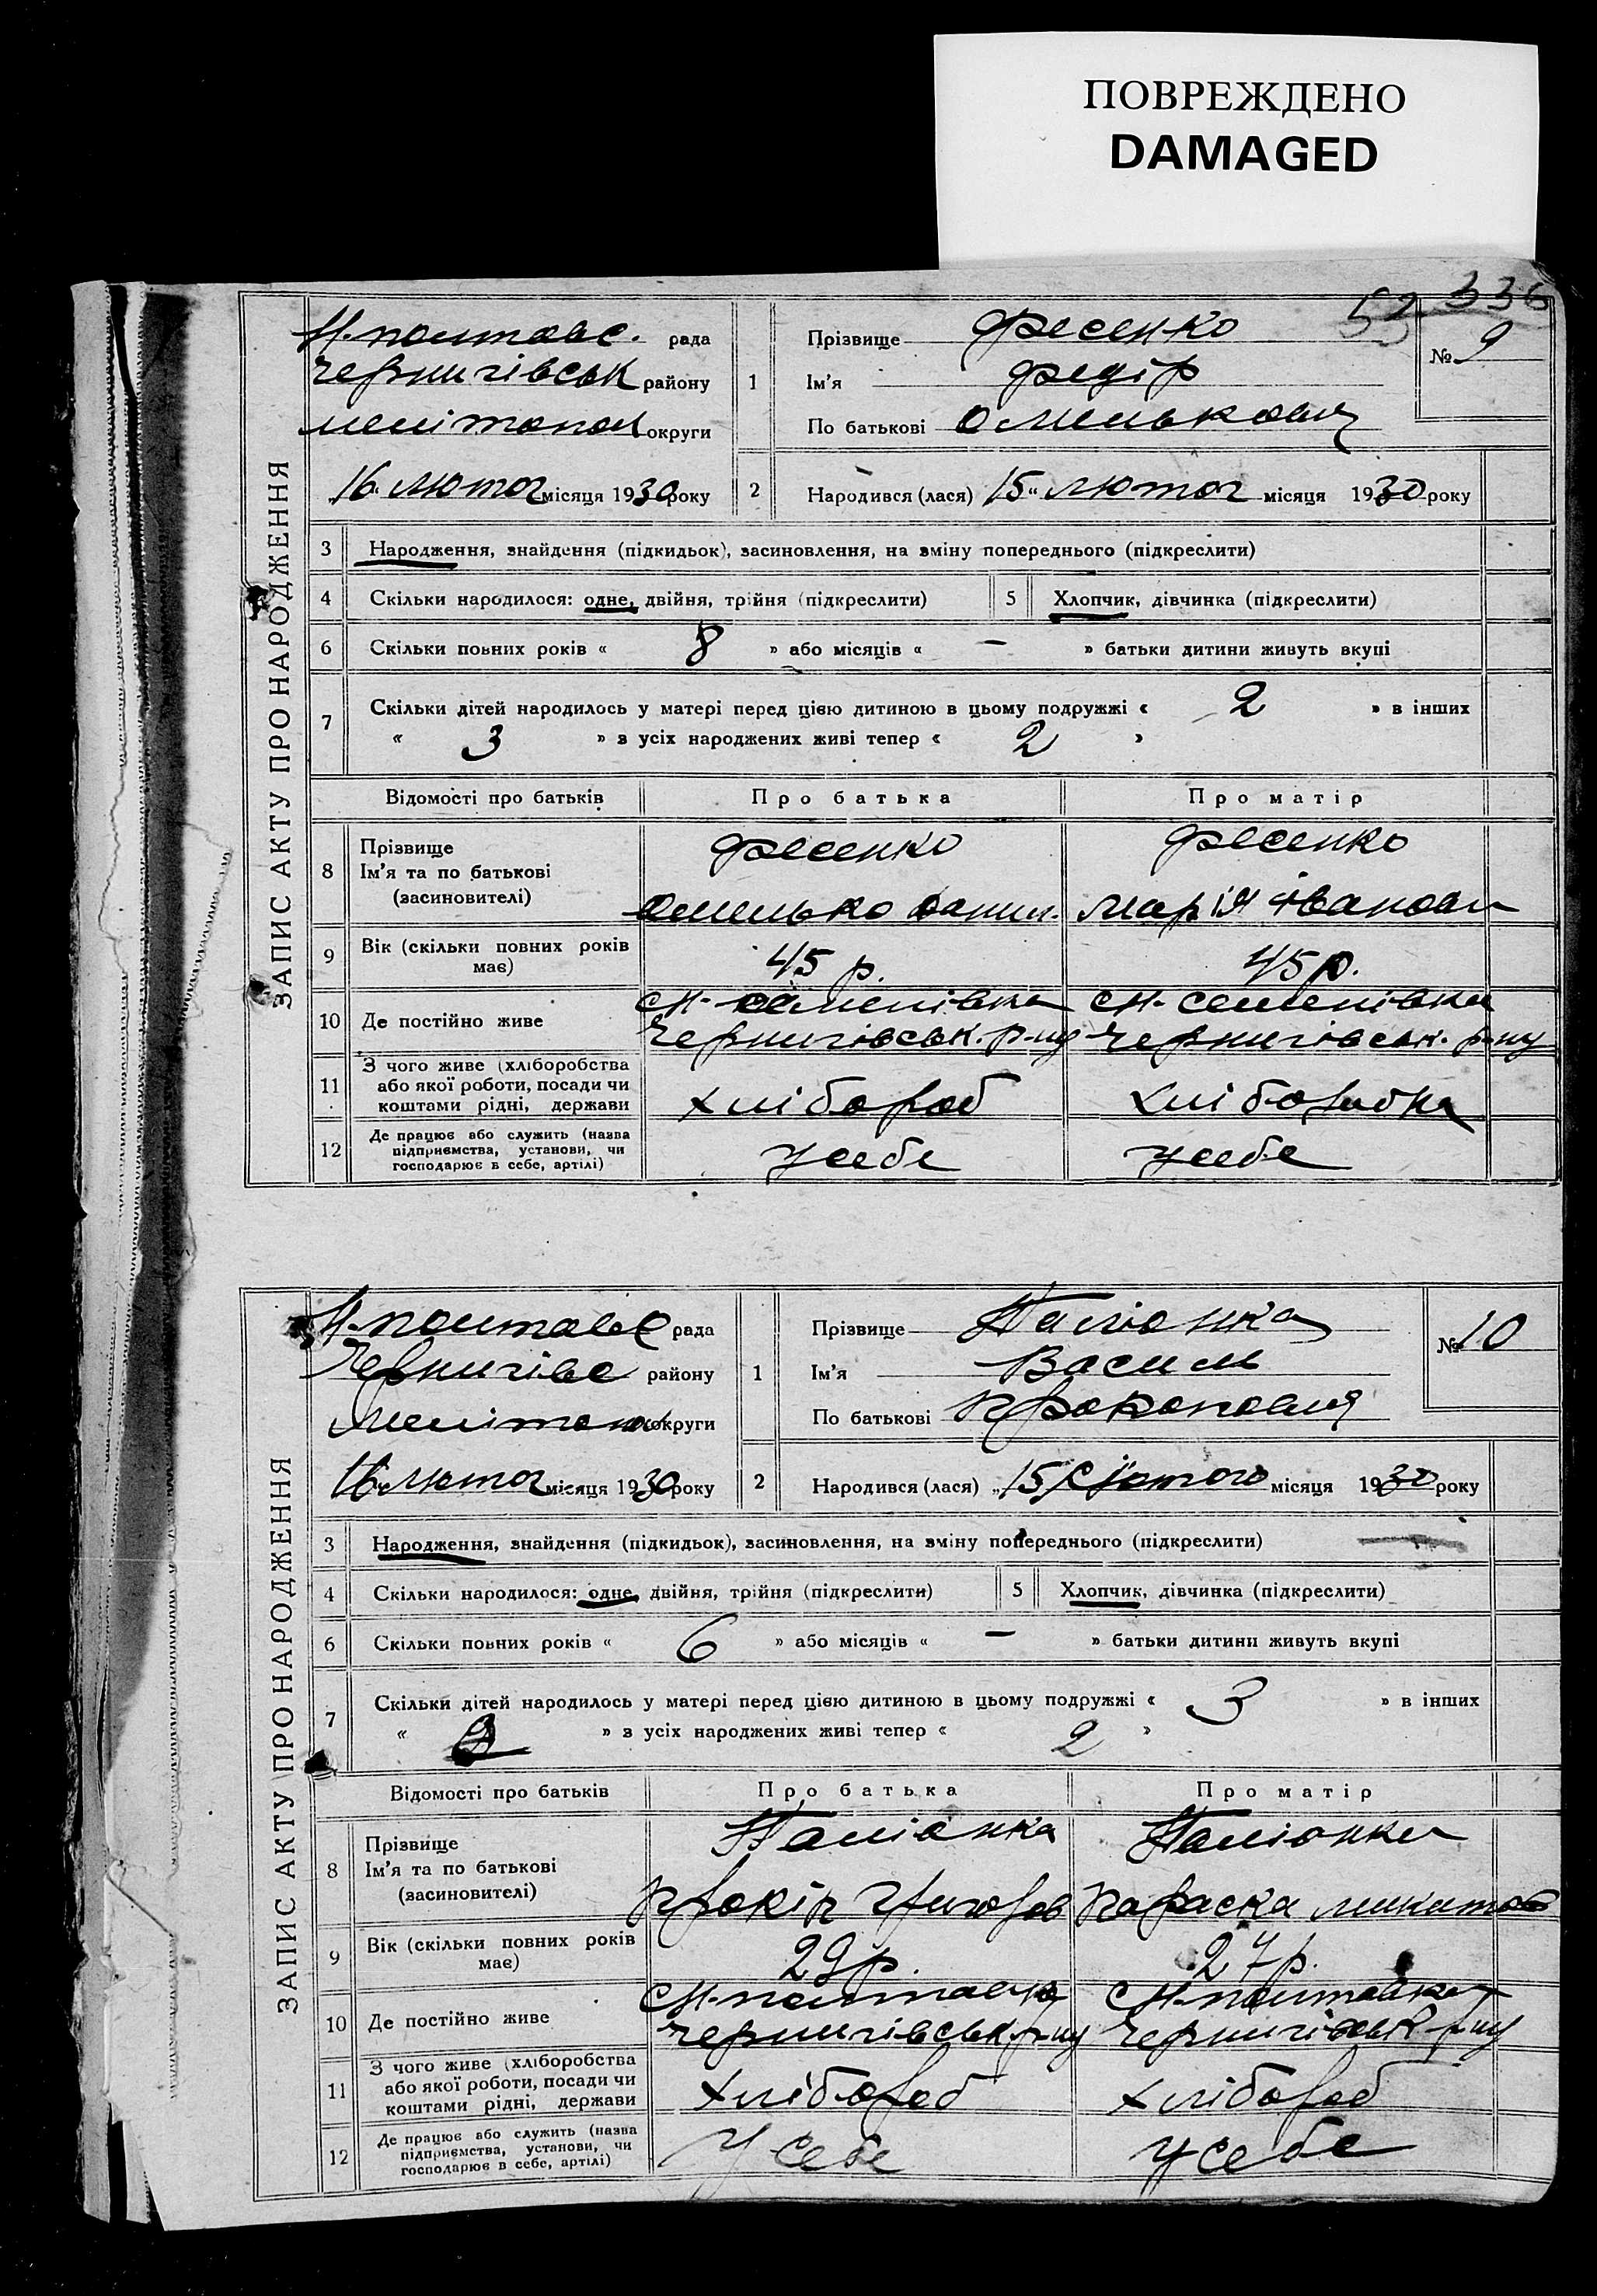 ПОВРЕЖДЕНО
DAMAGED
336
52
ЗАПИС АКТУ ПРО НАРОДЖЕННЯ
Н-полтавс. рада
Чернигівськ району
мелітопол округи
16 лютог місяця 1930 року
1 Прізвище Фесенко
Ім'я Федір
По батькові Омелькович
№ 9
2 Народився (лася) 15 „ лютог місяця 1930 року
3 Народження, знайдення (підкидьок), засиновлення, на зміну попереднього (підкреслити)
4 Скільки народилося: одне, двійня, трійня (підкреслити) 5 Хлопчик, дівчинка (підкреслити)
6 Скільки повних років « 8 » або місяців « — » батьки дитини живуть вкупі
7 Скільки дітей народилось у матері перед цією дитиною в цьому подружжі « 2 » в інших
« 3 » з усіх народжених живі тепер « 2 »
Відомості про батьків Про батька Про матір
8 Прізвище Фесенко Фесенко
Ім'я та по батькові
(засновителі) Омелько Данил. Марія Іванови
9 Вік (скільки повних років має) 45 р. 45 р.
10 Де постійно живе с Н-семенівка с Н-семенівка
Чернигівськ. р-ну Чернигівськ. р-ну
11 З чого живе (хліборобства
або якої роботи, посади чи
коштами рідні, держави хлібороб хліборобка
12 Де працює або служить (назва
підприємства, установи, чи
господарює в себе, артілі) у себе у себе
ЗАПИС АКТУ ПРО НАРОДЖЕННЯ
Н-полтавс рада
Чернигівс району
Мелітопол округи
16 лютог місяця 1930 року
1 Прізвище
Ім'я Василь
По батькові Прокопович
№ 10
2 Народився (лася) „ 15 „ лютого місяця 1930 року
3 Народження, знайдення (підкидьок), засиновлення, на зміну попереднього (підкреслити)
4 Скільки народилося: одне, двійня, трійня (підкреслити) 5 Хлопчик, дівчинка (підкреслити)
6 Скільки повних років « 6 » або місяців « — » батьки дитини живуть вкупі
7 Скільки дітей народилось у матері перед цією дитиною в цьому подружжі « 3 » в інших
« » з усіх народжених живі тепер « 2 »
Відомості про батьків Про батька Про матір
8 Прізвище
Ім'я та по батькові
(засиновителі) Прокіп Григоров Параска Микитов
9 Вік (скільки повних років має) 29 р. 27 р.
10 Де постійно живе с Н-полтавка с Н-полтавка
Чернигівськ. р-ну Чернигівськ р-ну
11 З чого живе (хліборобства
або якої роботи, посади чи
коштами рідні, держави хлібороб хлібороб
12 Де працює або служить (назва
підприємства, установи, чи
господарює в себе, артілі) У себе у себе